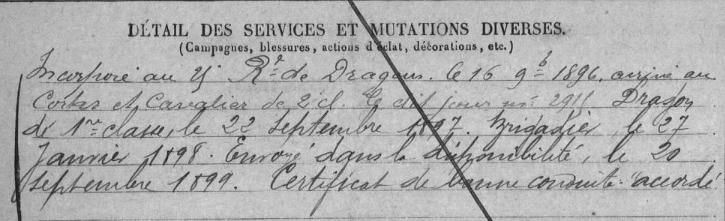 DÉTAIL DES SERVICES ET MUTATIONS DIVERSES.
(Campagnes, blessures, actions d'éclat, décorations, etc.)
Incorporé au Rt de Dragons. le 16 9b 1896, arrivé au
Corps et Cavalier de 2e cl. le dit jour no Dragon
de 1re classe, le 22 Septembre 1897. Brigadier, le 27
Janvier 1898. Envoyé dans la disponibilité, le 20
Septembre 1899. Certificat de bonne conduite accordé